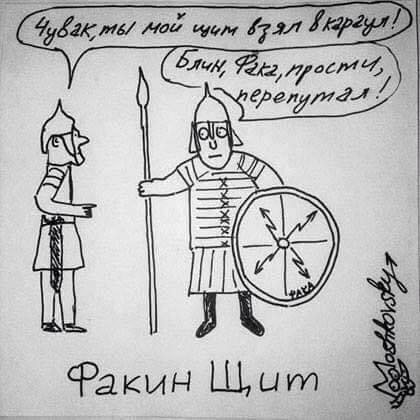 Чувак, ты мой щит взял в караул!
Блин, Фака, прости,
перепутал!
ФАКА
Факин Щит
Moshkovsky